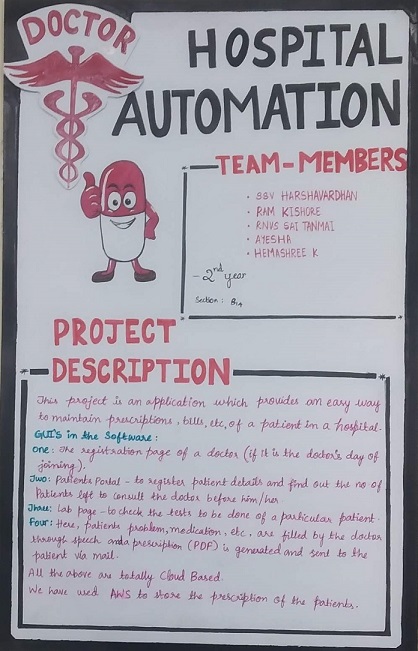 DOCTOR
HOSPITAL
AUTOMATION
TEAM-MEMBERS
• SSV HARSHAVARDHAN
• RAM KISHORE
• RNVS SAI TANMAI
• AYESHA
• HEMASHREE K
- 2nd year
Section: B14
PROJECT
DESCRIPTION
This project is an application which provides an easy way
to maintain prescriptions, bills, etc, of a patient in a hospital.
GUI'S in the Software:
One: The registration page of a doctor (if it is the doctor's day of
joining).
Two: Patients Portal - to register patient details and find out the no of
Patients left to consult the doctor before him/her.
Three: Lab page - to check the tests to be done of a particular patient.
Four: Here, patients problem, medication, etc, are filled by the doctor
through speech and a prescription (PDF) is generated and sent to the
patient via mail.
All the above are totally Cloud Based.
We have used AWS to store the prescription of the patients.